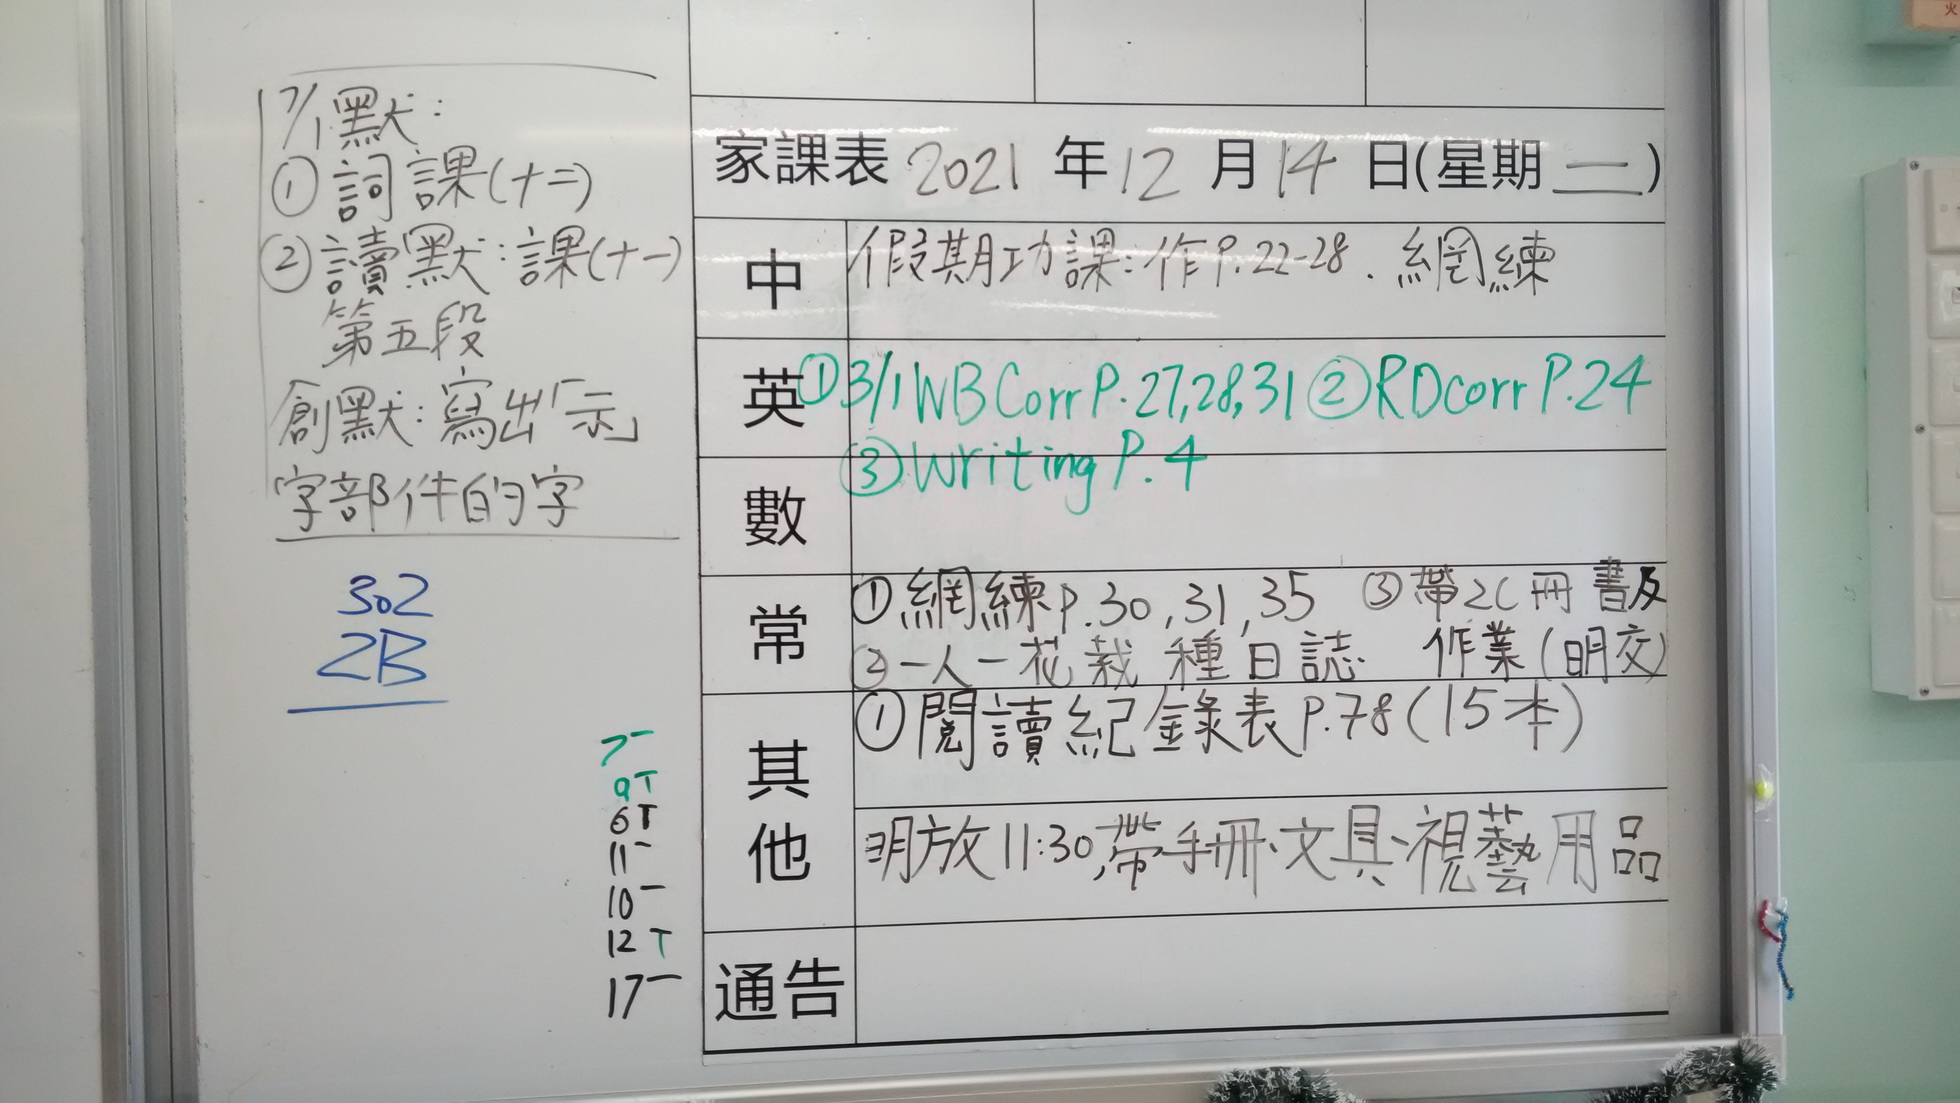 7/1默：
①詞課(十二)
②讀默：課(十一)
第五段
創默：寫出「示」
字部件的字
302
2B
7一
9T
6T
11一
10一
12T
17一
家課表 2021 年 12 月 14 日(星期 二)
中 假期功課：作P.22-28．網練
英 ①3/1 WB Corr P.27,28,31 ②RD corr P.24
③Writing P.4
數
常 ①網練P.30,31,35 ③帶2C冊書及
②一人一花栽種日誌. 作業(明交)
其他 ①閱讀紀錄表P.78(15本)
明放11:30,帶手冊、文具、視藝用品
通告
火